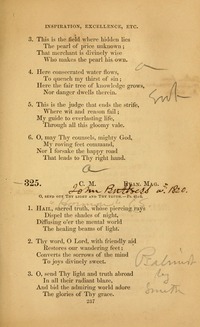 INSPIRATION, EXCELLENCE, ETC.
3. This is the field where hidden lies
The pearl of price unknown;
That merchant is divinely wise
Who makes the pearl his own.
a
4. Here consecrated water flows,
To quench my thirst of sin;
Here the fair tree of knowledge grows,
Nor danger dwells therein.
5. This is the judge that ends the strife,
Where wit and reason fail;
My guide to everlasting life,
Through all this gloomy vale.
6. O, may Thy counsels, mighty God,
My roving feet command,
Nor I forsake the happy road
That leads to Thy right hand.
a
325. C. M. EVAN. MAG.
John
1820.
O, SEND OUT THY LIGHT AND THY TRUTH.
1. HAIL, sacred truth, whose piercing rays
Dispel the shades of night,
Diffusing o'er the mental world
The healing beams of light.
2. Thy word, O Lord, with friendly aid
Restores our wandering feet;
Converts the sorrows of the mind
To joys divinely sweet.
by
Smith
3. O, send Thy light and truth abroad
In all their radiant blaze,
And bid the admiring world adore
The glories of Thy grace.
257